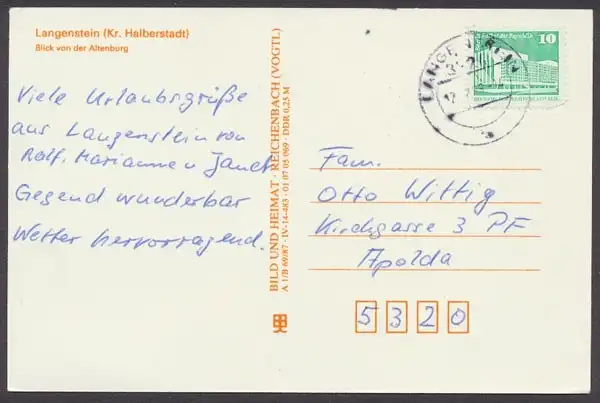 Langenstein (Kr. Halberstadt)
Blick von der Altenburg
Viele Urlaubsgrüße
aus Langenstein von
Rolf, Marianne u. Janet
Gegend wunderbar
Wetter hervorragend.
BILD UND HEIMAT · REICHENBACH (VOGTL)
A 1/B 69/87 · IV-14-483 · 01 07 05 069 · DDR 0,25 M
LANGENSTEIN
10
Fam.
Otto Wittig
Kirchgasse 3 PF
Apolda
5320